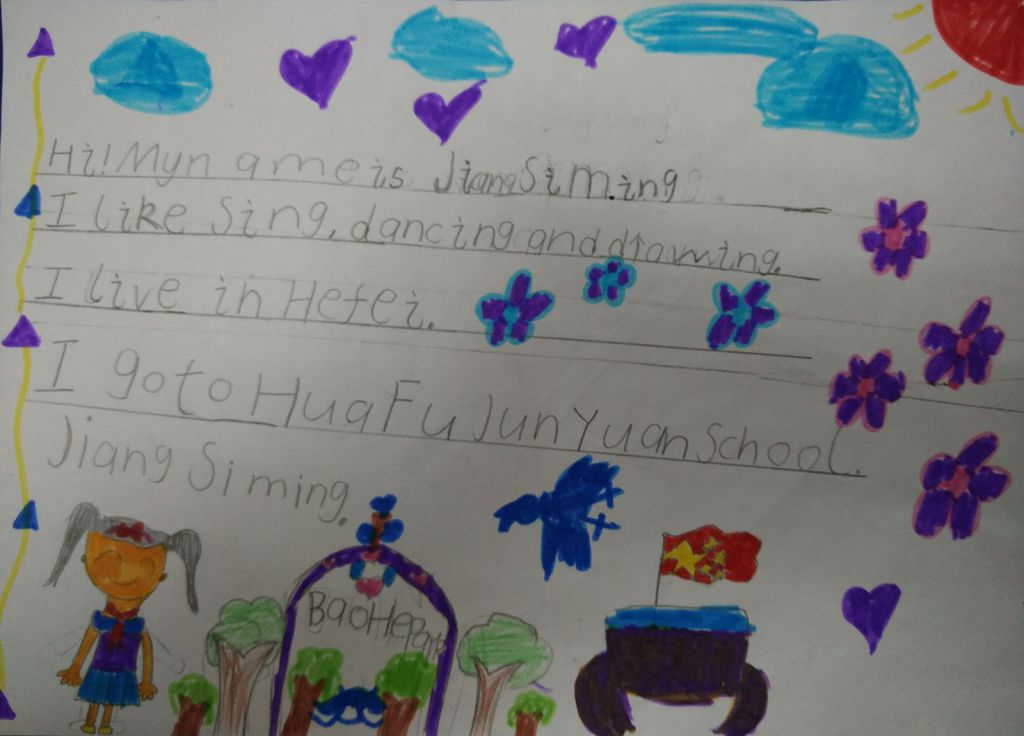 Hi! Myn ame is Jiang Siming
I like Sing, dancing and drawing.
I live in Hefei.
I go to Hua Fu Jun Yuan School.
Jiang Siming.
BaoHe Park